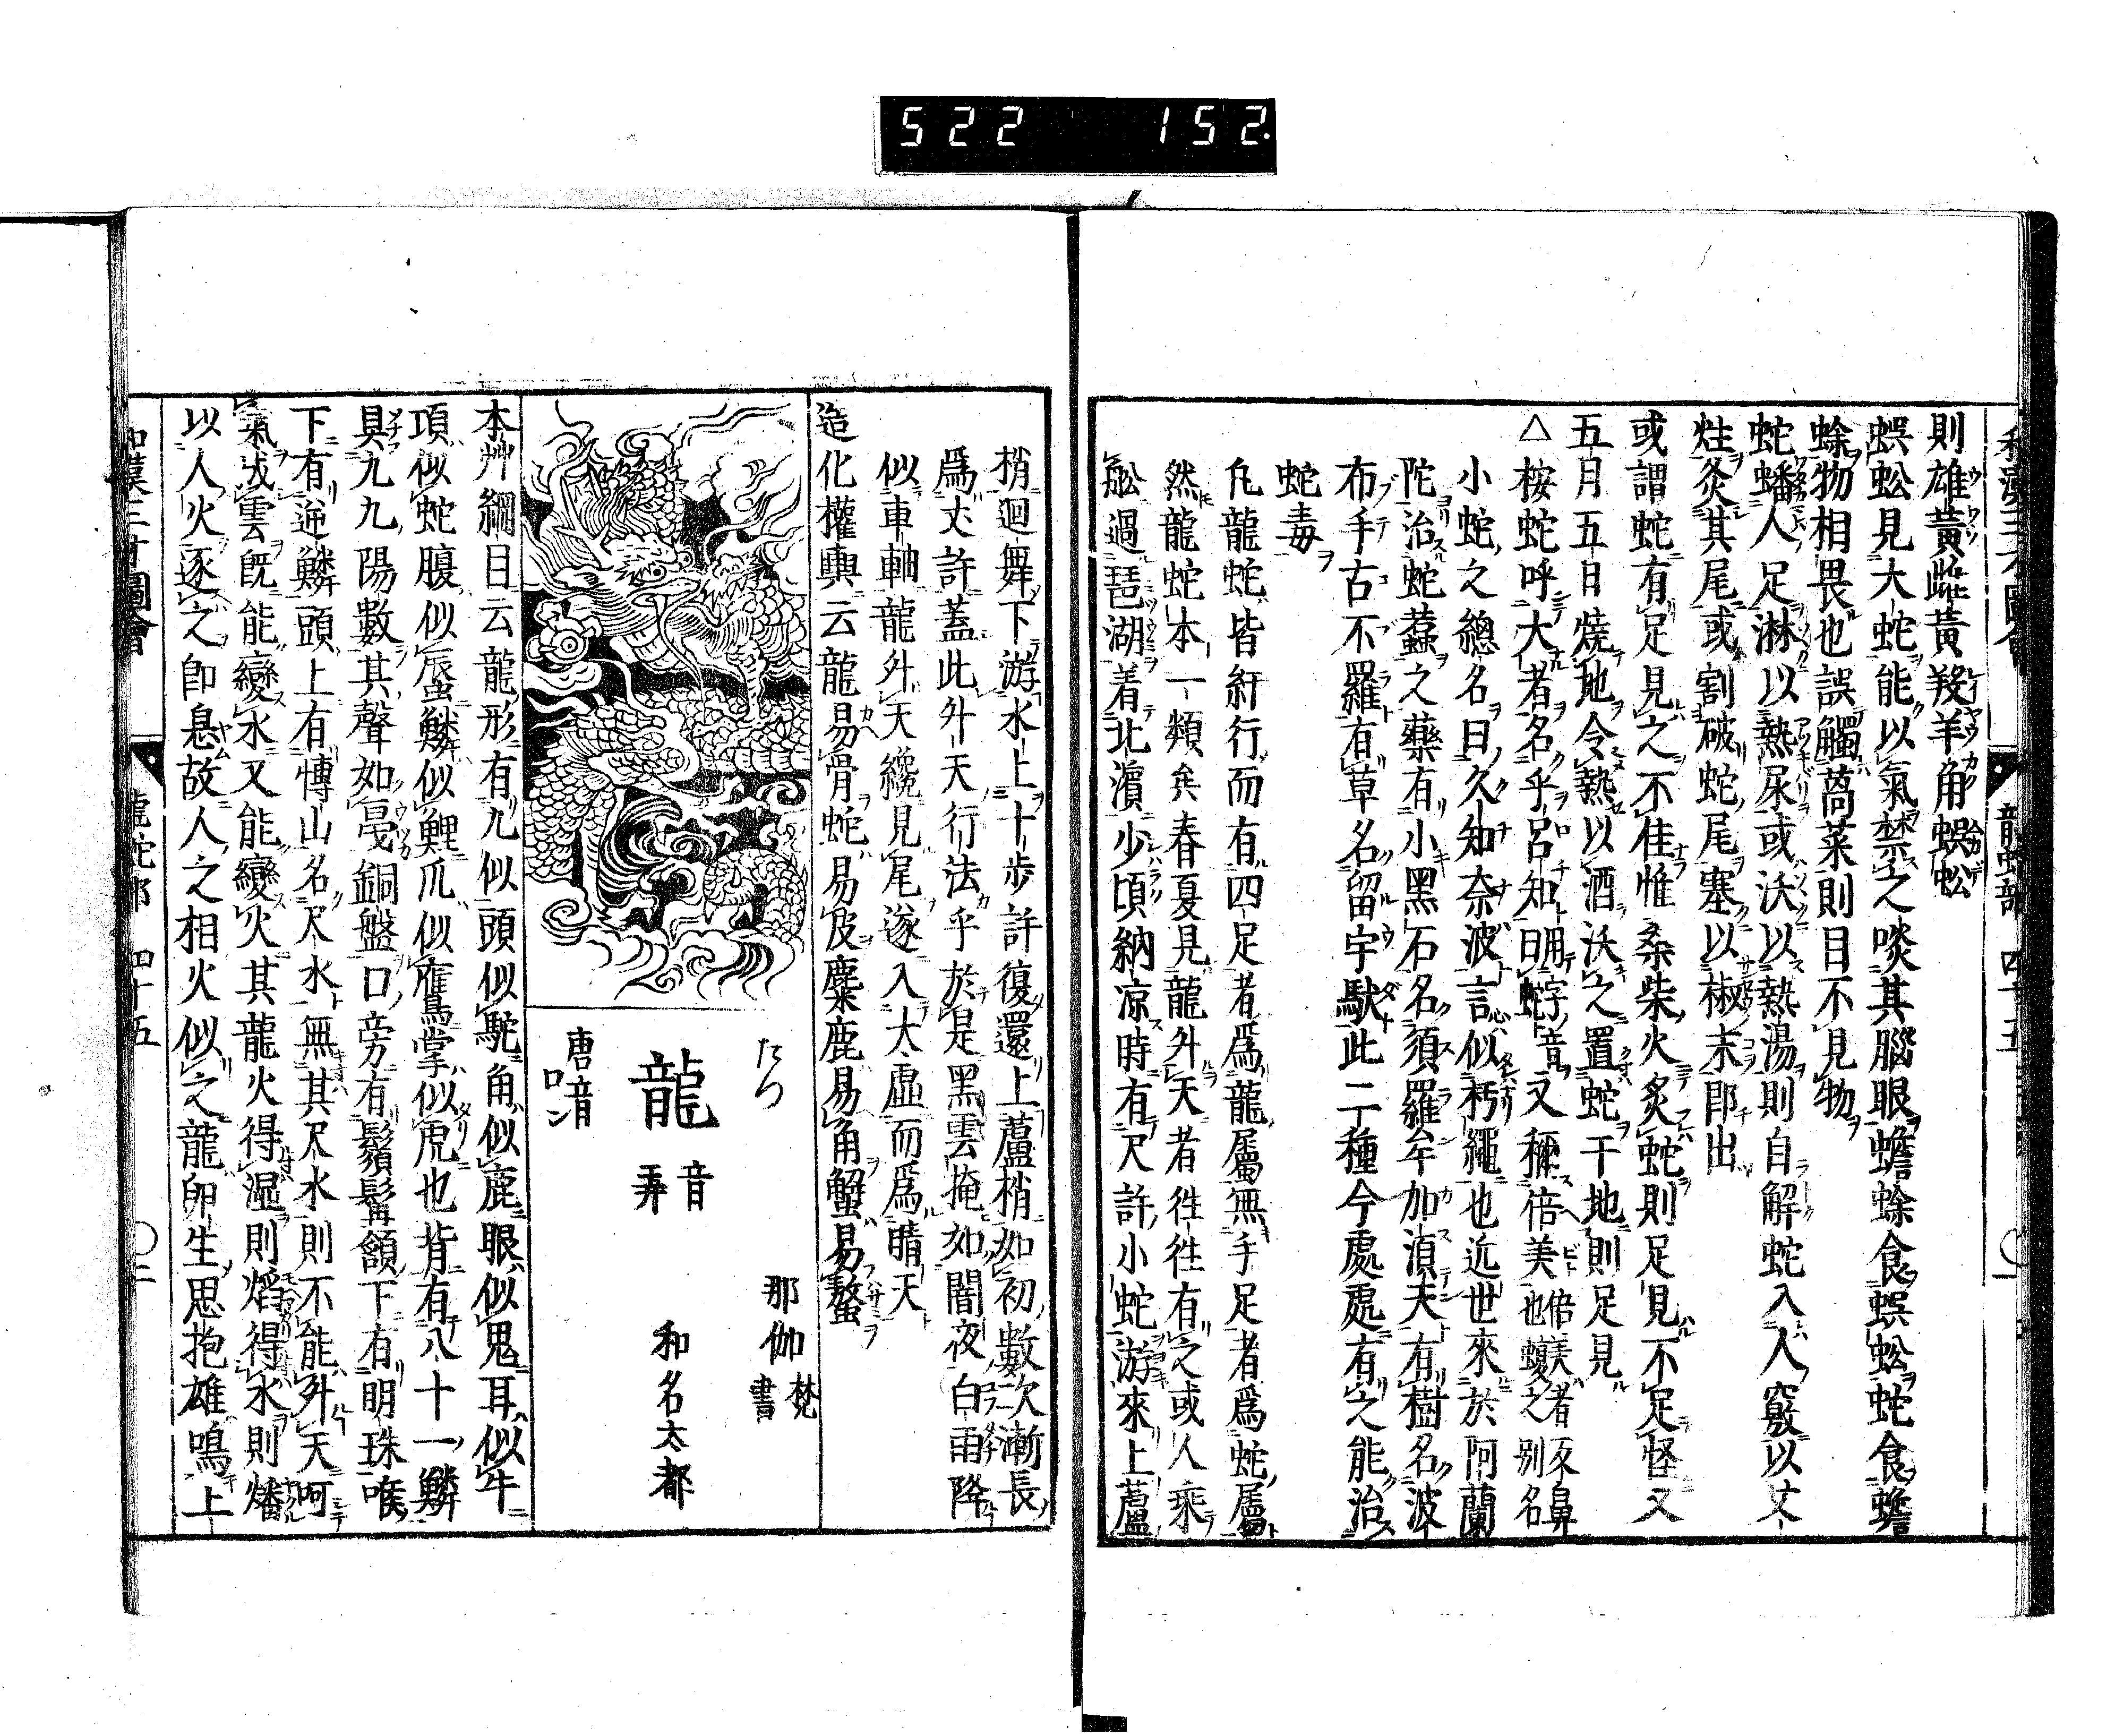 522 152.
龍蛇部 四十五
則雄黃雌黃羖羊角蜈蚣
蜈蚣見大蛇能以氣禁之啖其腦眼蟾蜍食蜈蚣蛇食蟾
蜍物相畏也誤觸萵菜則目不見物
蛇蟠人足淋以熱尿或沃以熱湯則自解蛇入人竅以艾
炷灸其尾或割破蛇尾塞以椒末即出
或謂蛇有足見之不佳惟桑柴火炙蛇則足見不足怪又
五月五日燒地令熱以酒沃之置蛇于地則足見
△按蛇呼大者名乎呂知又稱倍美倍美者反鼻也蝮之別名
小蛇之總名曰久知奈波言似朽繩也近世來於阿蘭
陀治蛇蠚之藥有小黑石名須羅牟加湏天有樹名波
布手古不羅有草名留宇駄此二種今處處有之能治
蛇毒
凡龍蛇皆紆行而有四足者爲龍屬無手足者爲蛇屬
然龍蛇本一類矣春夏見龍升天者徃徃有之或人乘
舩過琵湖着北濵少頃納凉時有尺許小蛇游來上蘆
梢迴舞下游水上十歩許復還上蘆梢如初數次漸長
爲丈許蓋此升天行法乎於是黑雲掩如闇夜白雨降
似車軸龍升天纔見尾遂入大虛而爲晴天
造化權輿云龍易骨蛇易皮麋鹿易角蟹易螯
たつ
那伽 梵書
龍 音 弄
和名太都
唐音 ロン
本艸綱目云龍形有九似頭似駝角似鹿眼似鬼耳似牛
項似蛇腹似蜃鱗似鯉爪似鷹掌似虎也背有八十一鱗
具九九陽數其聲如戞銅盤口旁有鬚髯頷下有明珠喉
下有逆鱗頭上有博山名尺水無其尺水則不能升天呵
氣成雲旣能變水又能變火其龍火得湿則焰得水則燔
以人火逐之卽息故人之相火似之龍卵生思抱雄鳴上
和漢三才圖會 龍蛇部 四十五 〇二